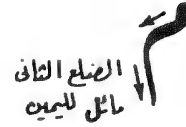 الضلع الثانى
مائل لليمين